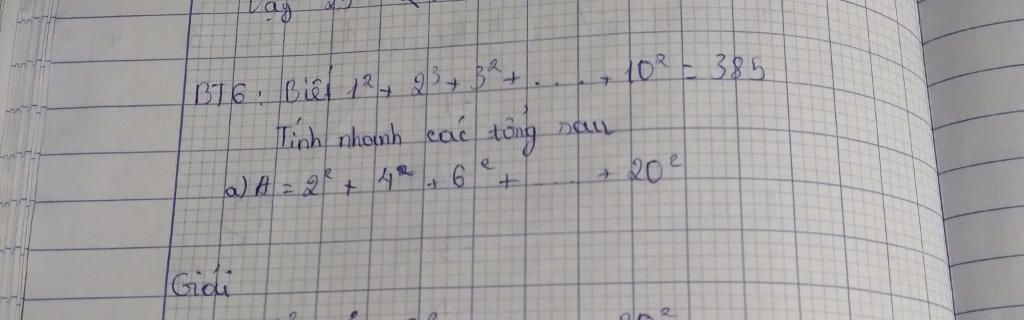 Vậy
BT6: Biết 1² + 2³ + 3² + ..... + 10² = 385
Tính nhanh các tổng sau
a) A = 2² + 4² + 6² + ..... + 20²
Giải